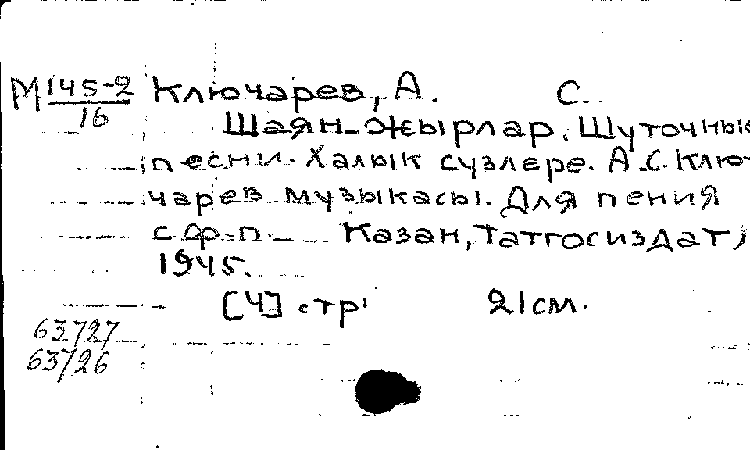 М 145-2 Ключарев, А. С.
16
Шаян-җырлар. Шуточные
песни. Халык сузлере. А.С. Клю-
чарев музыкасы. Для пения
с ф-п Казан, Татгосиздат,
1945.
[4] стр. 21 см.
63727
63726